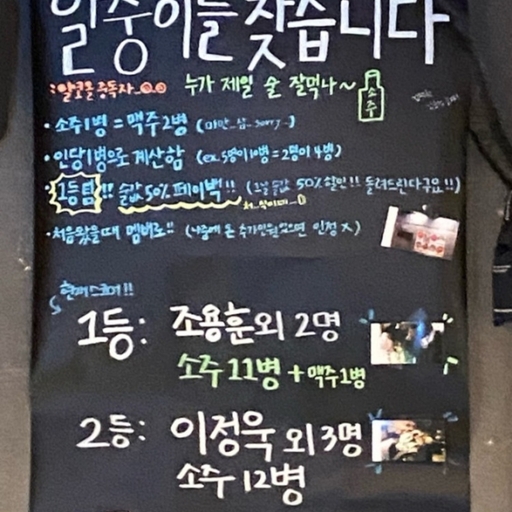 알중이를 찾습니다
:알코올 중독자
누가 제일 술 잘먹나~
소주
· 소주1병 = 맥주2병 (미안 sorry..)
· 인당 1병으로 계산함 (ex. 5명이 10병 = 2명이 4병)
· 1등팀!! 술값 50% 페이백!! (그날 술값 50% 할인!! 돌려드린다구요!!)
· 처음왔을때 멤버로!! (나중에 온 추가인원있으면 인정 X)
현재스코어!!
1등: 조용훈 외 2명
소주 11병 + 맥주1병
2등: 이정욱 외 3명
소주 12병